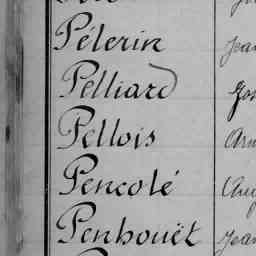 Pélerin Jean
Pelliard
Pellois
Pencolé
Penhouët Jean